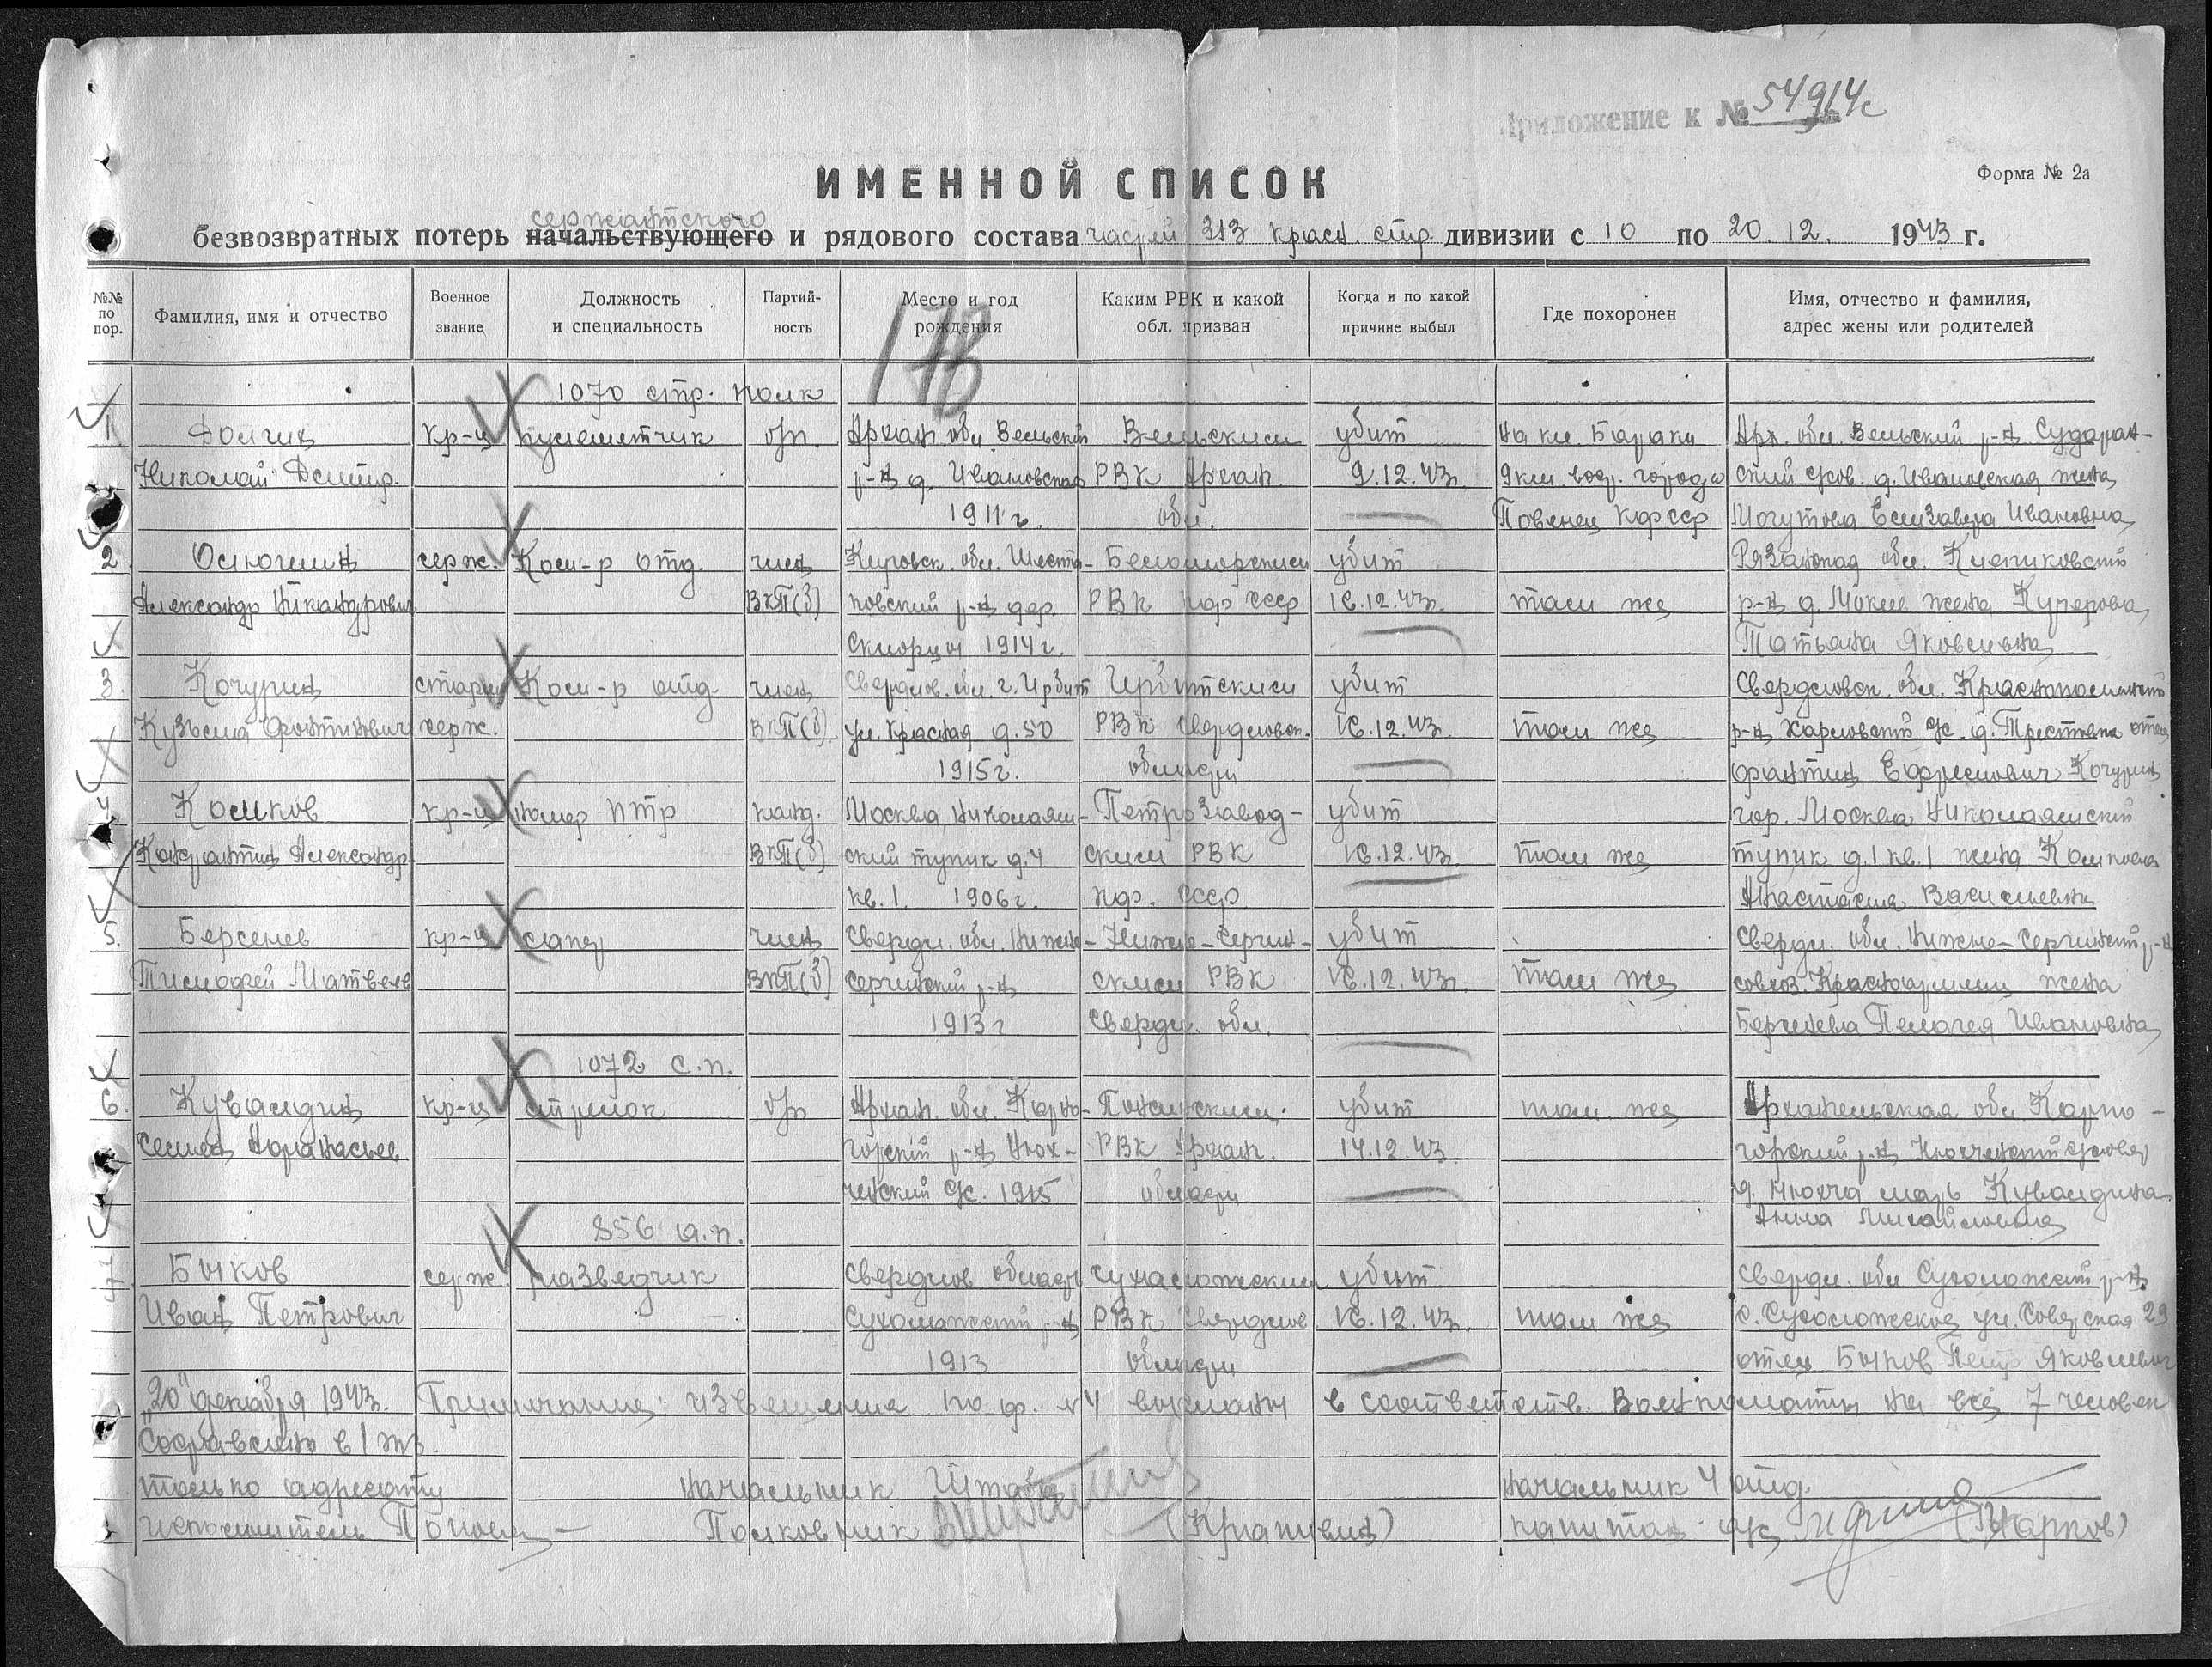 Приложение к № 54914с
ИМЕННОЙ СПИСОК
Форма № 2а
сержантского
безвозвратных потерь начальствующего и рядового состава частей 313 красн. стр. дивизии с 10 по 20.12. 1943 г.
№№ по пор.
Фамилия, имя и отчество
Военное звание
Должность и специальность
Партий-ность
Место и год рождения
Каким РВК и какой обл. призван
Когда и по какой причине выбыл
Где похоронен
Имя, отчество и фамилия, адрес жены или родителей
178
1070 стр. полк
1 кр-ц пулеметчик б/п Архан. обл Вельский Вельским убит на кл. Бараки Арх. обл. Вельский р-н Сударан-
Николай Дмитр. р-н д. Ивановская РВК Архан. 9.12.43г. 9 км. вост. города ский с/сов. д. Ивановская жена
1911г. обл. Повенец КФССР Могутова Елизавета Ивановна
2. серж. Ком-р отд. член Кировск. обл. Беломорским убит Рязанская обл. Клепиковский
Александр Никандрович ВКП(б) р-н дер. РВК КФССР 16.12.43г. там же р-н д. жена
Скворцы 1914г. Татьяна Яковлевна
3. Кочурин старш Ком-р отд. член Свердлов. обл. г. Ирбит Ирбитским убит Свердловск. обл. Краснополянский
Кузьма Фонтинович серж. ВКП(б) ул. Красная д. 50 РВК Свердловск. 16.12.43г. там же р-н Харловский с/с. д. отец
1915г. области Ефремович Кочурин
4 Комков кр-ц номер ПТР канд. Москва, Николаям- Петрозавод- убит гор. Москва Николаямский
Александр. ВКП(б) ский тупик д. 4 ским РВК 16.12.43г. там же тупик д. 1 кв. 1 жена Комкова
кв. 1. 1906г. КФ. ССР Анастасия Васильевна
5. Берсенев кр-ц сапер член Свердл. обл. Нижне- Нижне-Сергин- убит Свердл. обл. Нижне-Сергинский р-н
Тимофей Матвеев ВКП(б) Сергинский р-н ским РВК 16.12.43г. там же совхоз. Красноармеец жена
1913г Свердл. обл. Берсенева Пелагея Ивановна
1072 с.п.
6. Кувалдин кр-ц стрелок б/п Архан. обл. Карпо- убит там же Архангельская обл Карпо-
Семен Афанасьев. горский р-н Нюх- РВК Архан. 14.12.43 горский р-н Нюхченский с/совет
ченский с/с. 1915 области д. Нюхча мать Кувалдина
Анна Михайловна
856 а.п.
7 Быков серж разведчик Свердлов области Сухоложским убит Свердл. обл Сухоложский р-н
Иван Петрович Сухоложский р-н РВК Свердлов. 16.12.43г. там же с. Сухоложское ул. Советская 29
1913 области отец Быков Петр Яковлевич
„20" декабря 1943г. Примечание: извещения по ф. №4 высланы в соответств. Военкоматы на все 7 человек
Составлено в 1 экз.
только адресату Начальник Штаба Начальник 4 отд.
исполнитель Полковник (Крапивин) капитан а/с (Марков)